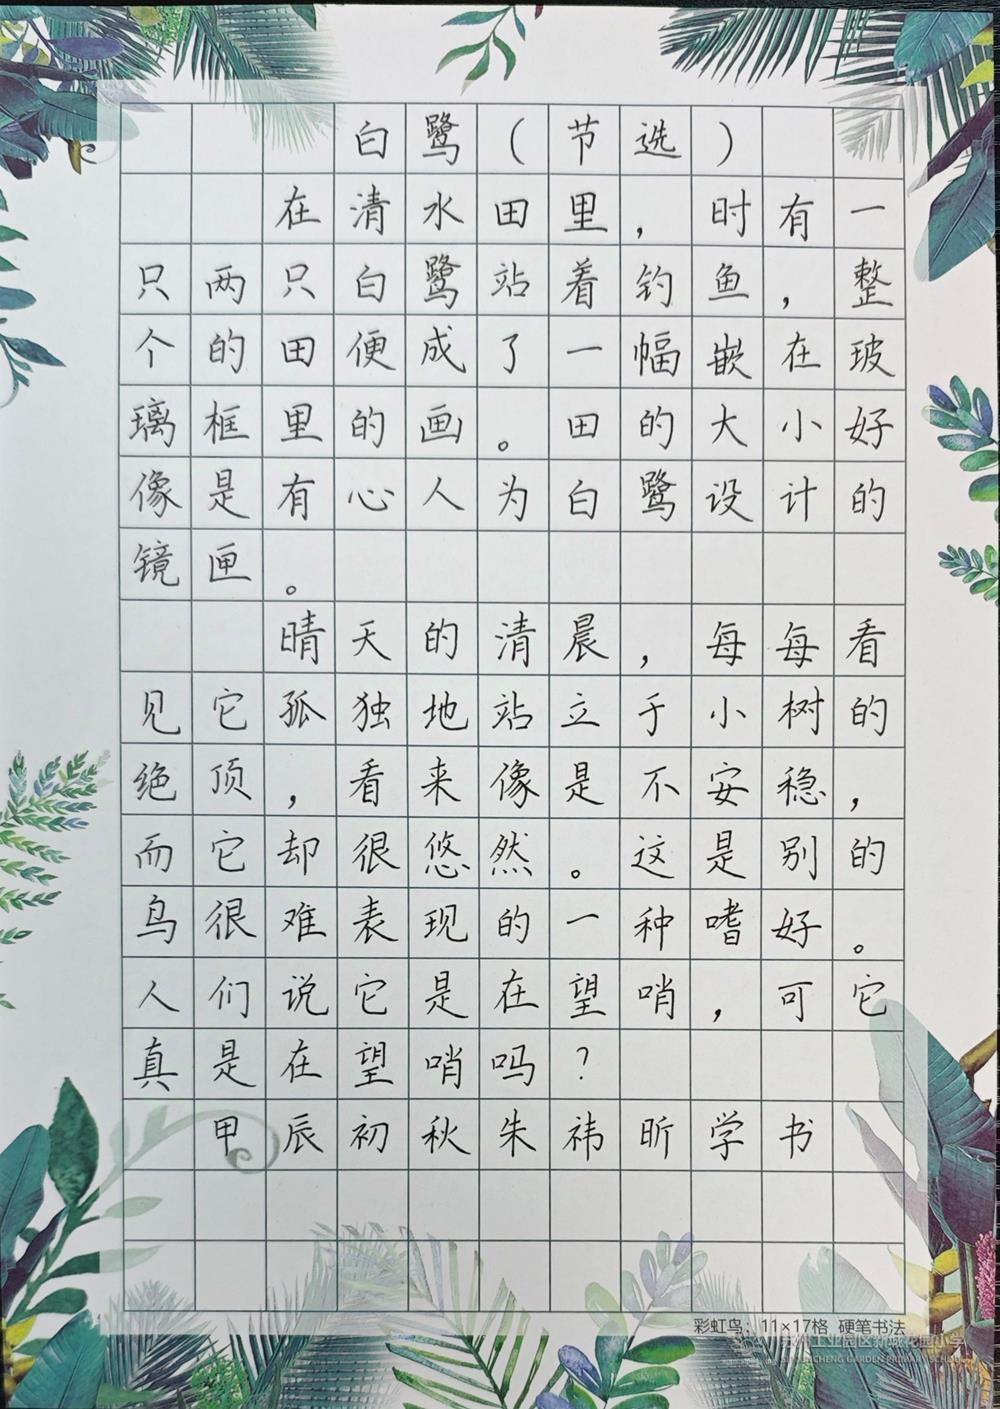 白鹭（节选）
在清水田里，时有一
只两只白鹭站着钓鱼，整
个的田便成了一幅嵌在玻
璃框里的画。田的大小好
像是有心人为白鹭设计的
镜匣。
晴天的清晨，每每看
见它孤独地站立于小树的
绝顶，看来像是不安稳，
而它却很悠然。这是别的
鸟很难表现的一种嗜好。
人们说它是在望哨，可它
真是在望哨吗？
甲辰初秋朱祎昕学书
彩虹鸟：11×17格 硬笔书法
苏州工业园区新城花园小学
SIP XINCHENG GARDEN PRIMARY SCHOOL